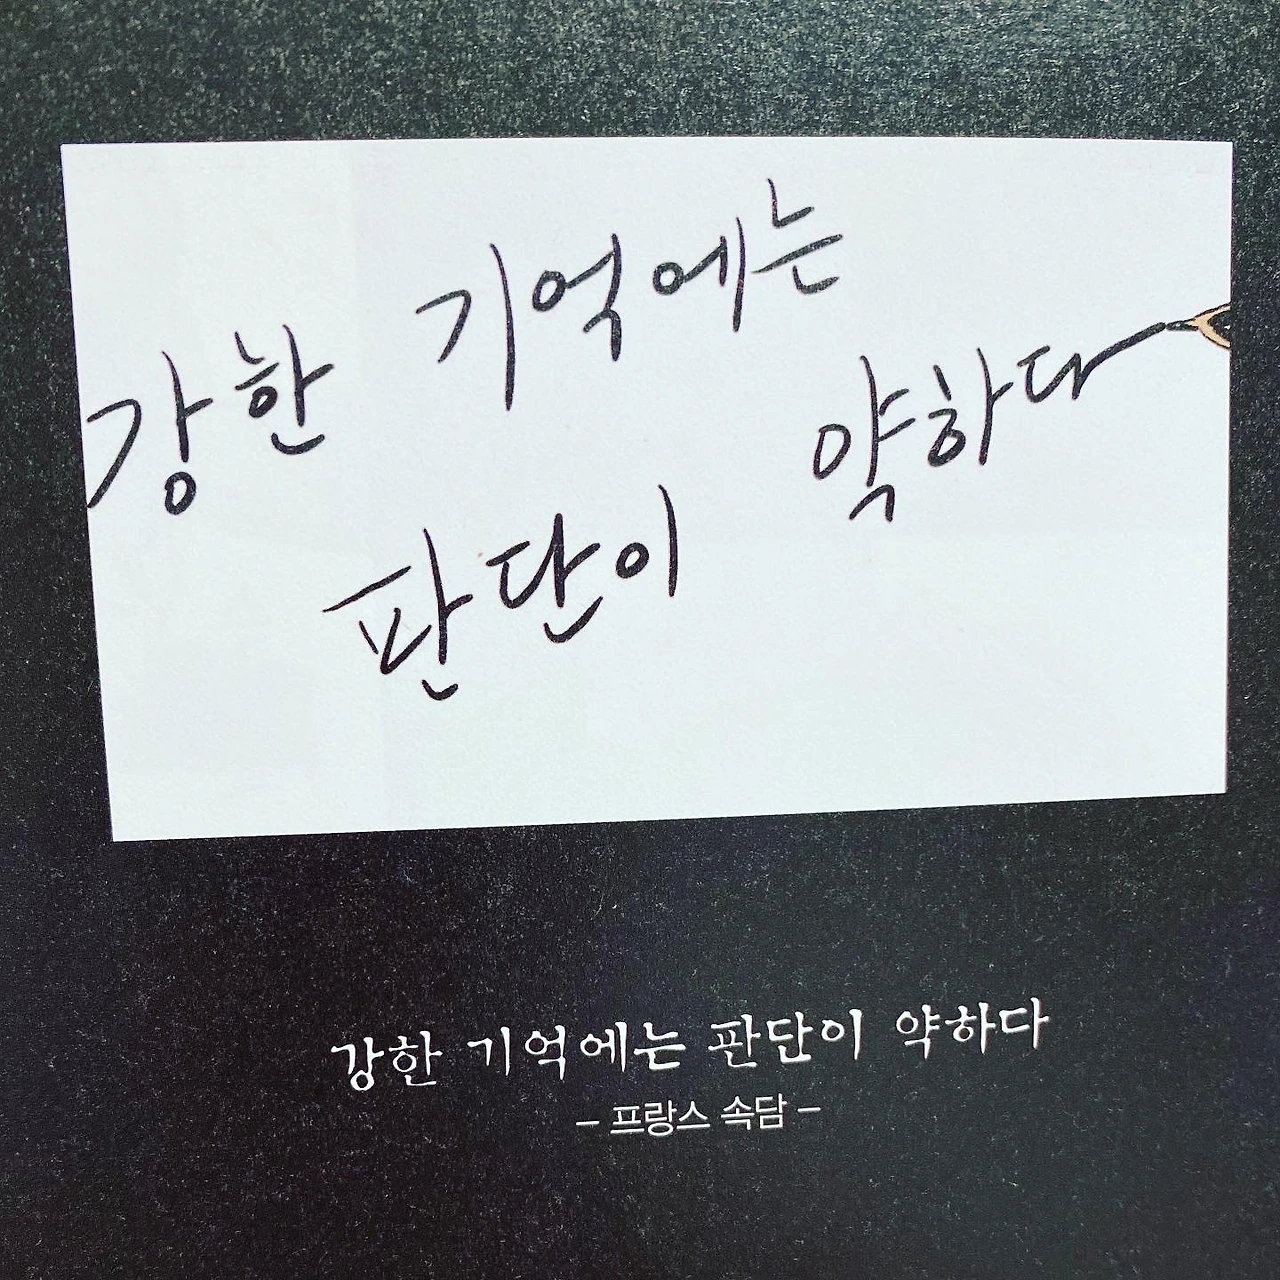 강한 기억에는
판단이 약하다
강한 기억에는 판단이 약하다
– 프랑스 속담 –